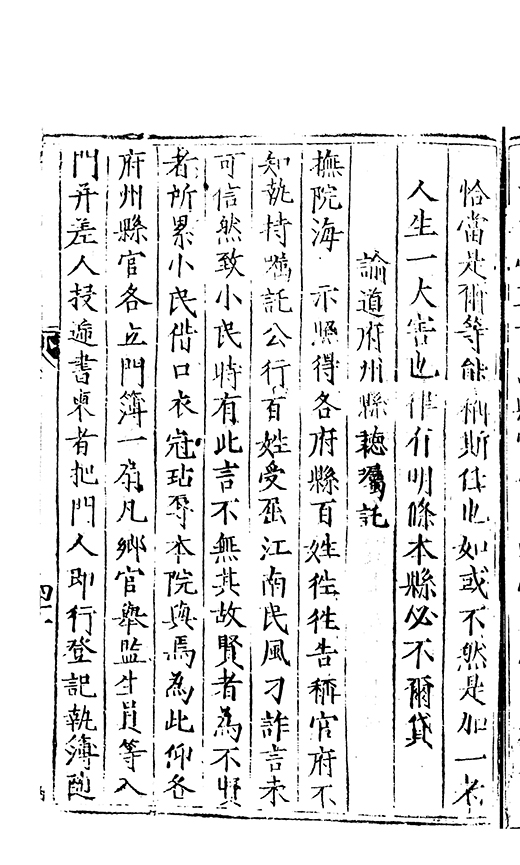 恰當是衙等能稱斯任也如或不然是加一者
人生一大害也律有明條本縣必不爾貸
諭道府州縣聽囑託
撫院海 示照得各府縣百姓徃徃告稱官府不
知執持囑託公行百姓受惡江南民風刁詐言未
可信然致小民時有此言不無其故賢者為不賢
者所累小民借口衣冠玷辱本院與焉為此仰各
府州縣官各立門簿一扇凡鄉官舉監生員等入
門并差人投逓書柬者把門人即行登記執簿隨